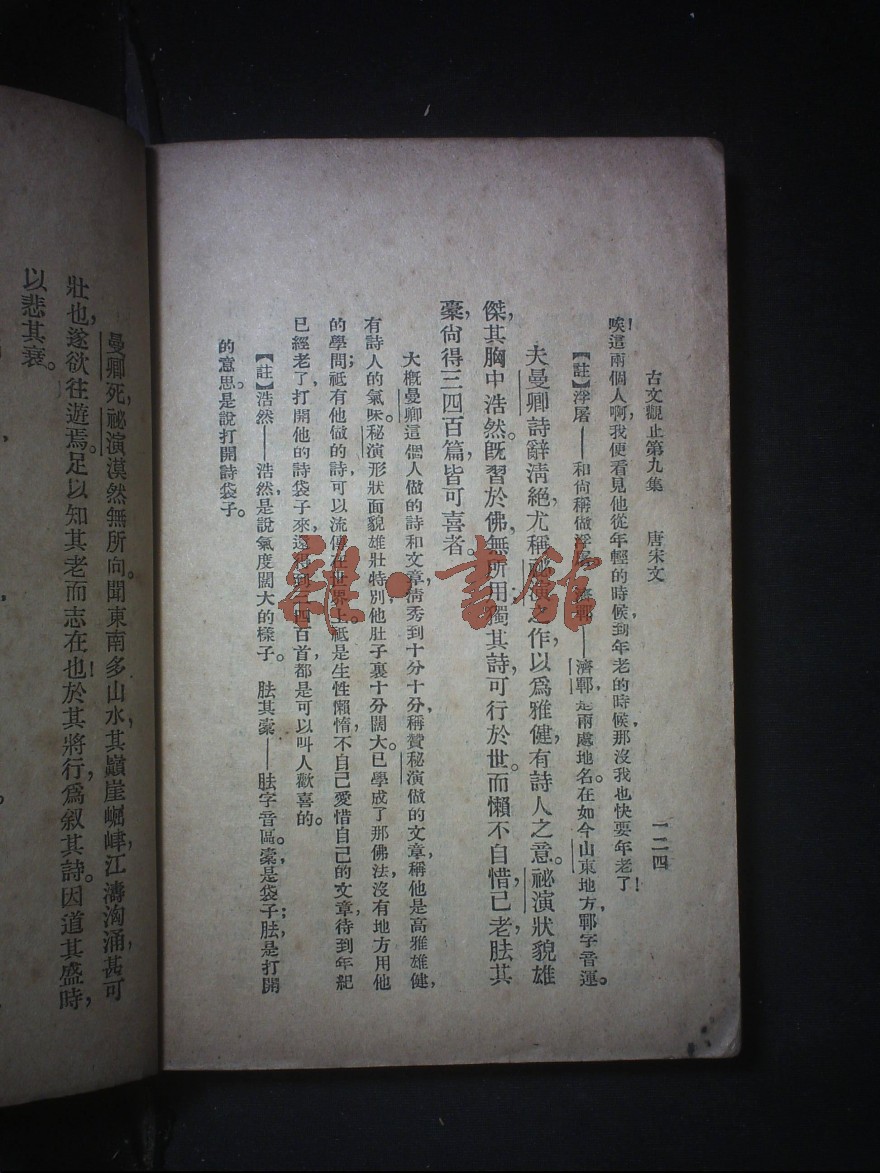 古文觀止第九集　唐宋文　一二四
唉！這兩個人啊，我便看見他從年輕的時候，到年老的時候，那沒我也快要年老了！
【註】浮屠——和尙稱做浮屠。濟鄆——濟鄆，是兩處地名。在如今山東地方，鄆字音運。
夫曼卿詩辭淸絕，尤稱祕演之作，以爲雅健，有詩人之意。祕演狀貌雄
傑，其胸中浩然。旣習於佛，無所用；獨其詩可行於世。而懶不自惜，已老，胠其
橐，尙得三四百篇，皆可喜者。
大槪曼卿這個人做的詩和文章，淸秀到十分十分，稱贊秘演做的文章，稱他是高雅雄健，
有詩人的氣味。秘演形狀面貌雄壯特別，他肚子裏十分闊大。已學成了那佛法，沒有地方用他
的學問；祗有他做的詩，可以流傳在世界上。祗是生性懶惰，不自己愛惜自己的文章，待到年紀
已經老了，打開他的詩袋子來，還得到三四百首，都是可以叫人歡喜的。
【註】浩然——浩然，是說氣度闊大的樣子。　胠其橐——胠字音區。橐，是袋子；胠，是打開
的意思。是說打開詩袋子。
曼卿死，祕演漠然無所向。聞東南多山水，其巓崖崛峍，江濤洶涌，甚可
壯也，遂欲往遊焉。足以知其老而志在也！於其將行，爲叙其詩。因道其盛時，
以悲其衰。
雜·書館